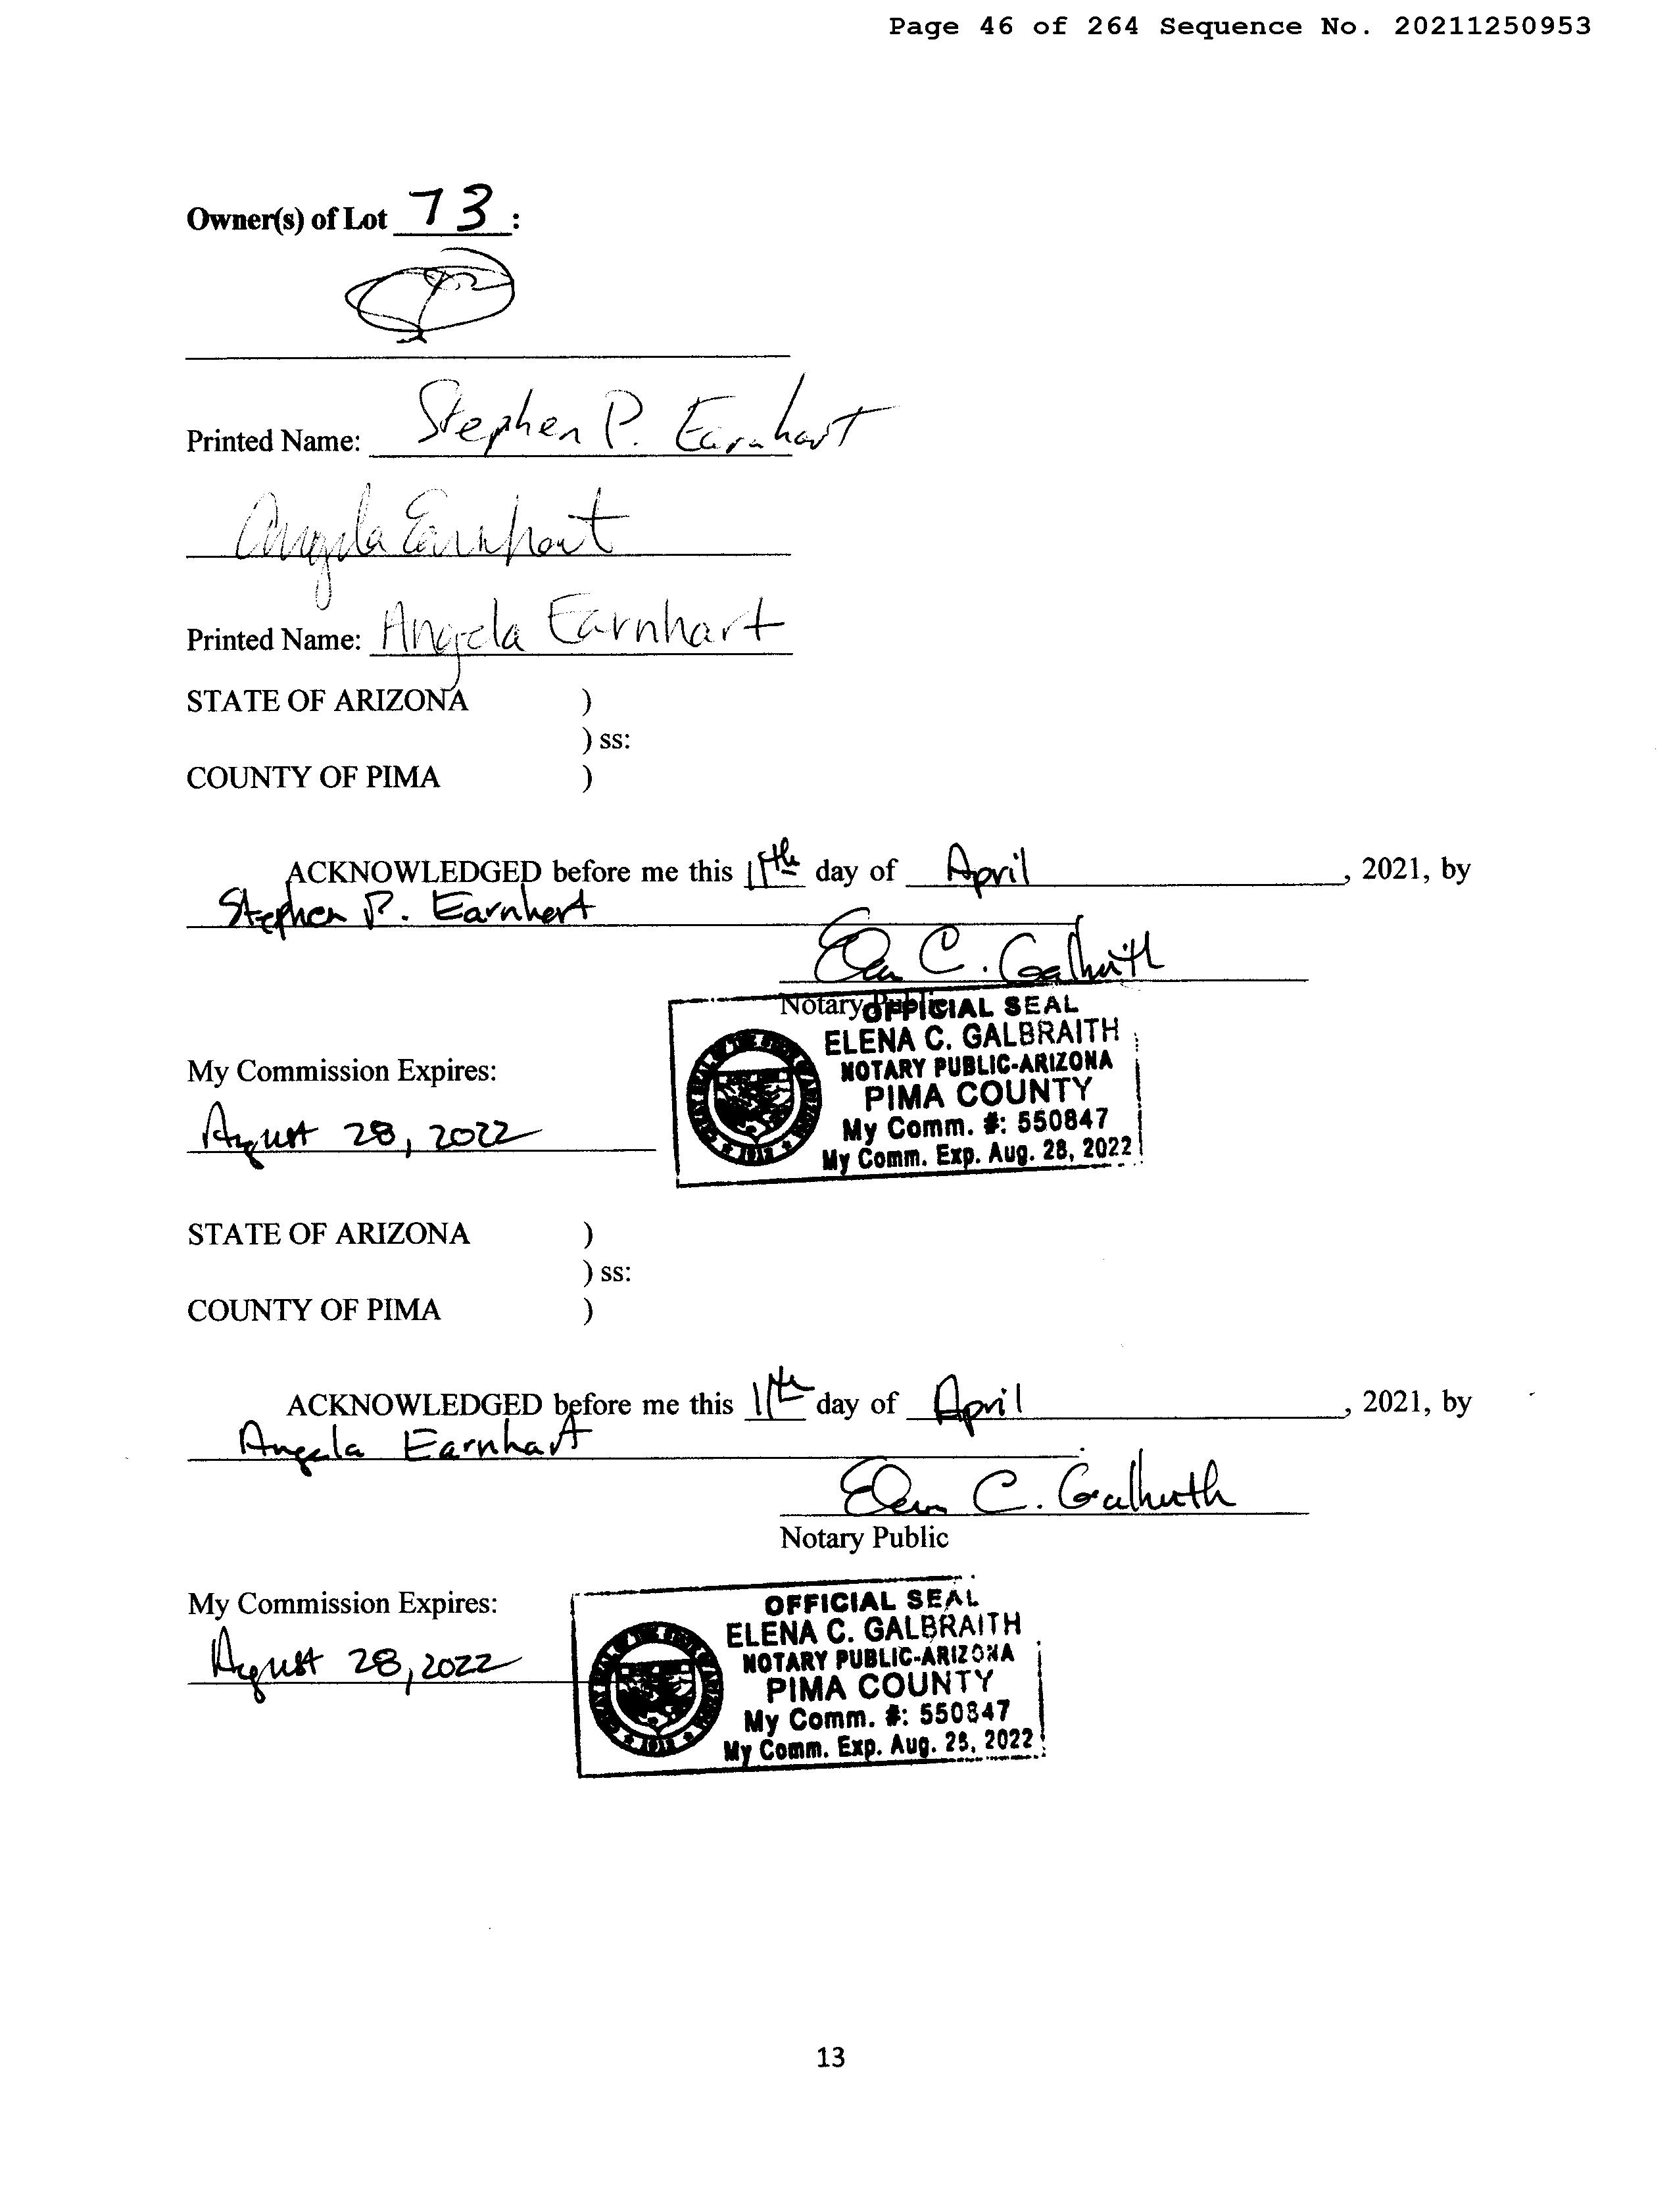 Page 46 of 264 Sequence No. 20211250953
Owner(s) of Lot 73 :
Printed Name: Stephen P. Earnhart
Angela Earnhart
Printed Name: Angela Earnhart
STATE OF ARIZONA )
) ss:
COUNTY OF PIMA )
ACKNOWLEDGED before me this 11th day of April , 2021, by
Stephen P. Earnhart
Elena C. Galbraith
Notary Public
OFFICIAL SEAL
ELENA C. GALBRAITH
NOTARY PUBLIC-ARIZONA
PIMA COUNTY
My Comm. #: 550847
My Comm. Exp. Aug. 28, 2022
GREAT SEAL OF THE STATE OF ARIZONA
1912
My Commission Expires:
August 28, 2022
STATE OF ARIZONA )
) ss:
COUNTY OF PIMA )
ACKNOWLEDGED before me this 11th day of April , 2021, by
Angela Earnhart
Elena C. Galbraith
Notary Public
My Commission Expires:
August 28, 2022
OFFICIAL SEAL
ELENA C. GALBRAITH
NOTARY PUBLIC-ARIZONA
PIMA COUNTY
My Comm. #: 550847
My Comm. Exp. Aug. 28, 2022
GREAT SEAL OF THE STATE OF ARIZONA
1912
13